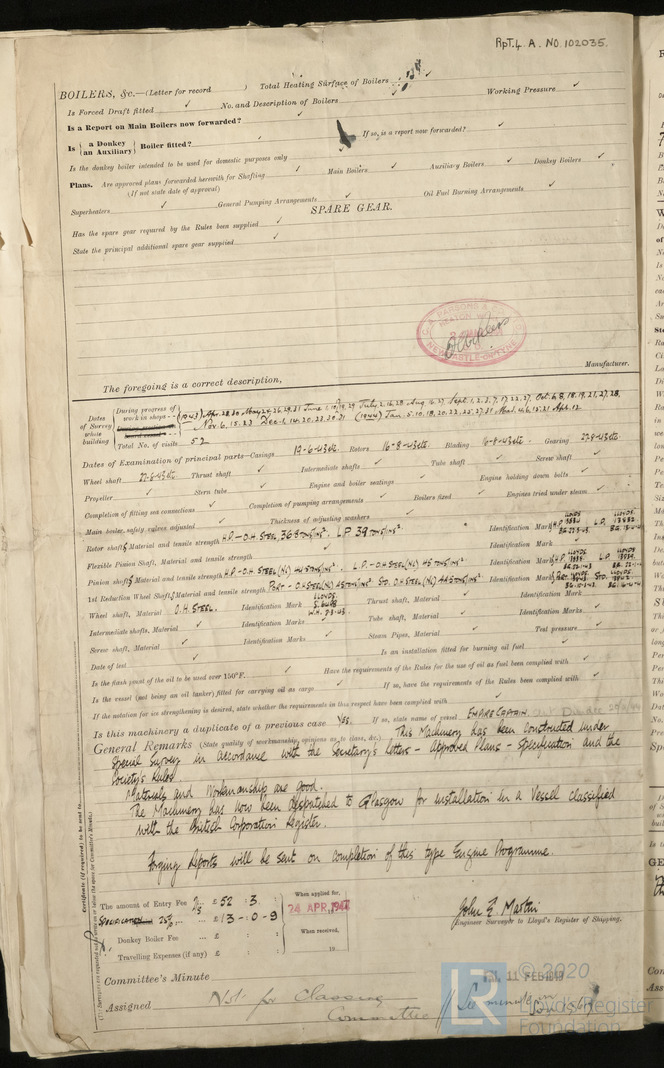 Rpt. 4 A. No. 102035.
BOILERS, &c.—(Letter for record ) Total Heating Surface of Boilers
Is Forced Draft fitted ✓ No. and Description of Boilers Working Pressure ✓
Is a Report on Main Boilers now forwarded? ✓
Is { a Donkey / an Auxiliary } Boiler fitted? ✓ If so, is a report now forwarded? ✓
Is the donkey boiler intended to be used for domestic purposes only ✓
Plans. Are approved plans forwarded herewith for Shafting ✓ Main Boilers ✓ Auxiliary Boilers ✓ Donkey Boilers ✓
(If not state date of approval)
Superheaters ✓ General Pumping Arrangements ✓ Oil Fuel Burning Arrangements ✓
SPARE GEAR.
Has the spare gear required by the Rules been supplied ✓
State the principal additional spare gear supplied ✓
C. A. PARSONS &
HEATON
NEWCASTLE-ON-TYNE
The foregoing is a correct description, Manufacturer.
Dates of Survey while building
During progress of work in shops - - (1943) Apr. 28.30 May 24.26.29.31 June 1.10.19.29 July 2.16.28 Aug. 16.27 Sept. 1.2.3.7.17.22.27. Oct. 6.8.18.19.21.27.28.
Nov. 6.15.23 Dec. 1.14.20.23.30.31 (1944) Jan. 5.10.18.20.22.25.27.31 Mar. 4.6.15.21 Apr. 12.
Total No. of visits 52
Dates of Examination of principal parts—Casings 19-6-43 etc. Rotors 16-8-43 etc. Blading 6-8-43 etc. Gearing 27-8-43 etc.
Wheel shaft 27-8-43 etc. Thrust shaft ✓ Intermediate shafts ✓ Tube shaft ✓ Screw shaft ✓
Propeller ✓ Stern tube ✓ Engine and boiler seatings ✓ Engine holding down bolts ✓
Completion of fitting sea connections ✓ Completion of pumping arrangements ✓ Boilers fixed ✓ Engines tried under steam ✓
Main boiler safety valves adjusted ✓ Thickness of adjusting washers ✓
Rotor shafts Material and tensile strength H.P - O.H. STEEL 36.8 TONS/INS². L.P 39 TONS/INS². Identification Mark
Flexible Pinion Shaft, Material and tensile strength Identification Mark
Pinion shafts Material and tensile strength H.P - O.H. STEEL (NI) 44 TONS/INS². L.P. - O.H. STEEL (NI) 45 TONS/INS². Identification Mark
1st Reduction Wheel Shafts Material and tensile strength PORT - O.H STEEL (NI) 45 TONS/INS² STD. O.H STEEL (NI) 44 TONS/INS². Identification Mark
Wheel shaft, Material O.H. STEEL. Identification Mark LLOYDS. Thrust shaft, Material ✓ Identification Mark ✓
Intermediate shafts, Material ✓ Identification Marks ✓ Tube shaft, Material ✓ Identification Marks ✓
Screw shaft, Material ✓ Identification Marks ✓ Steam Pipes, Material ✓ Test pressure ✓
Date of test ✓ Is an installation fitted for burning oil fuel ✓
Is the flash point of the oil to be used over 150°F. ✓ Have the requirements of the Rules for the use of oil as fuel been complied with ✓
Is the vessel (not being an oil tanker) fitted for carrying oil as cargo ✓ If so, have the requirements of the Rules been complied with ✓
If the notation for ice strengthening is desired, state whether the requirements in this respect have been complied with ✓
Is this machinery a duplicate of a previous case YES. If so, state name of vessel EMPIRE CAPTAIN.
General Remarks (State quality of workmanship, opinions as to class, &c.) This Machinery has been constructed under
Special Survey in accordance with the Secretary's Letters - Approved Plans - Specification and the
Society's Rules
Materials and Workmanship are good.
The Machinery has now been despatched to Glasgow for installation in a Vessel classified
with the British Corporation Register.
Forging Reports will be sent on completion of this type Engine Programme.
Certificate (if required) to be sent to
The amount of Entry Fee £ 52 : 3 : When applied for,
25% £ 13 - 0 - 9 24 APR 1944
Donkey Boiler Fee ... £ : : When received,
Travelling Expenses (if any) £ : : 19
John F. Martin
Engineer Surveyor to Lloyd's Register of Shipping.
Committee's Minute 11 FEB 1949
Assigned Not for Classing
Committee
See minute on
© 2020
LR
Lloyd's Register
Foundation